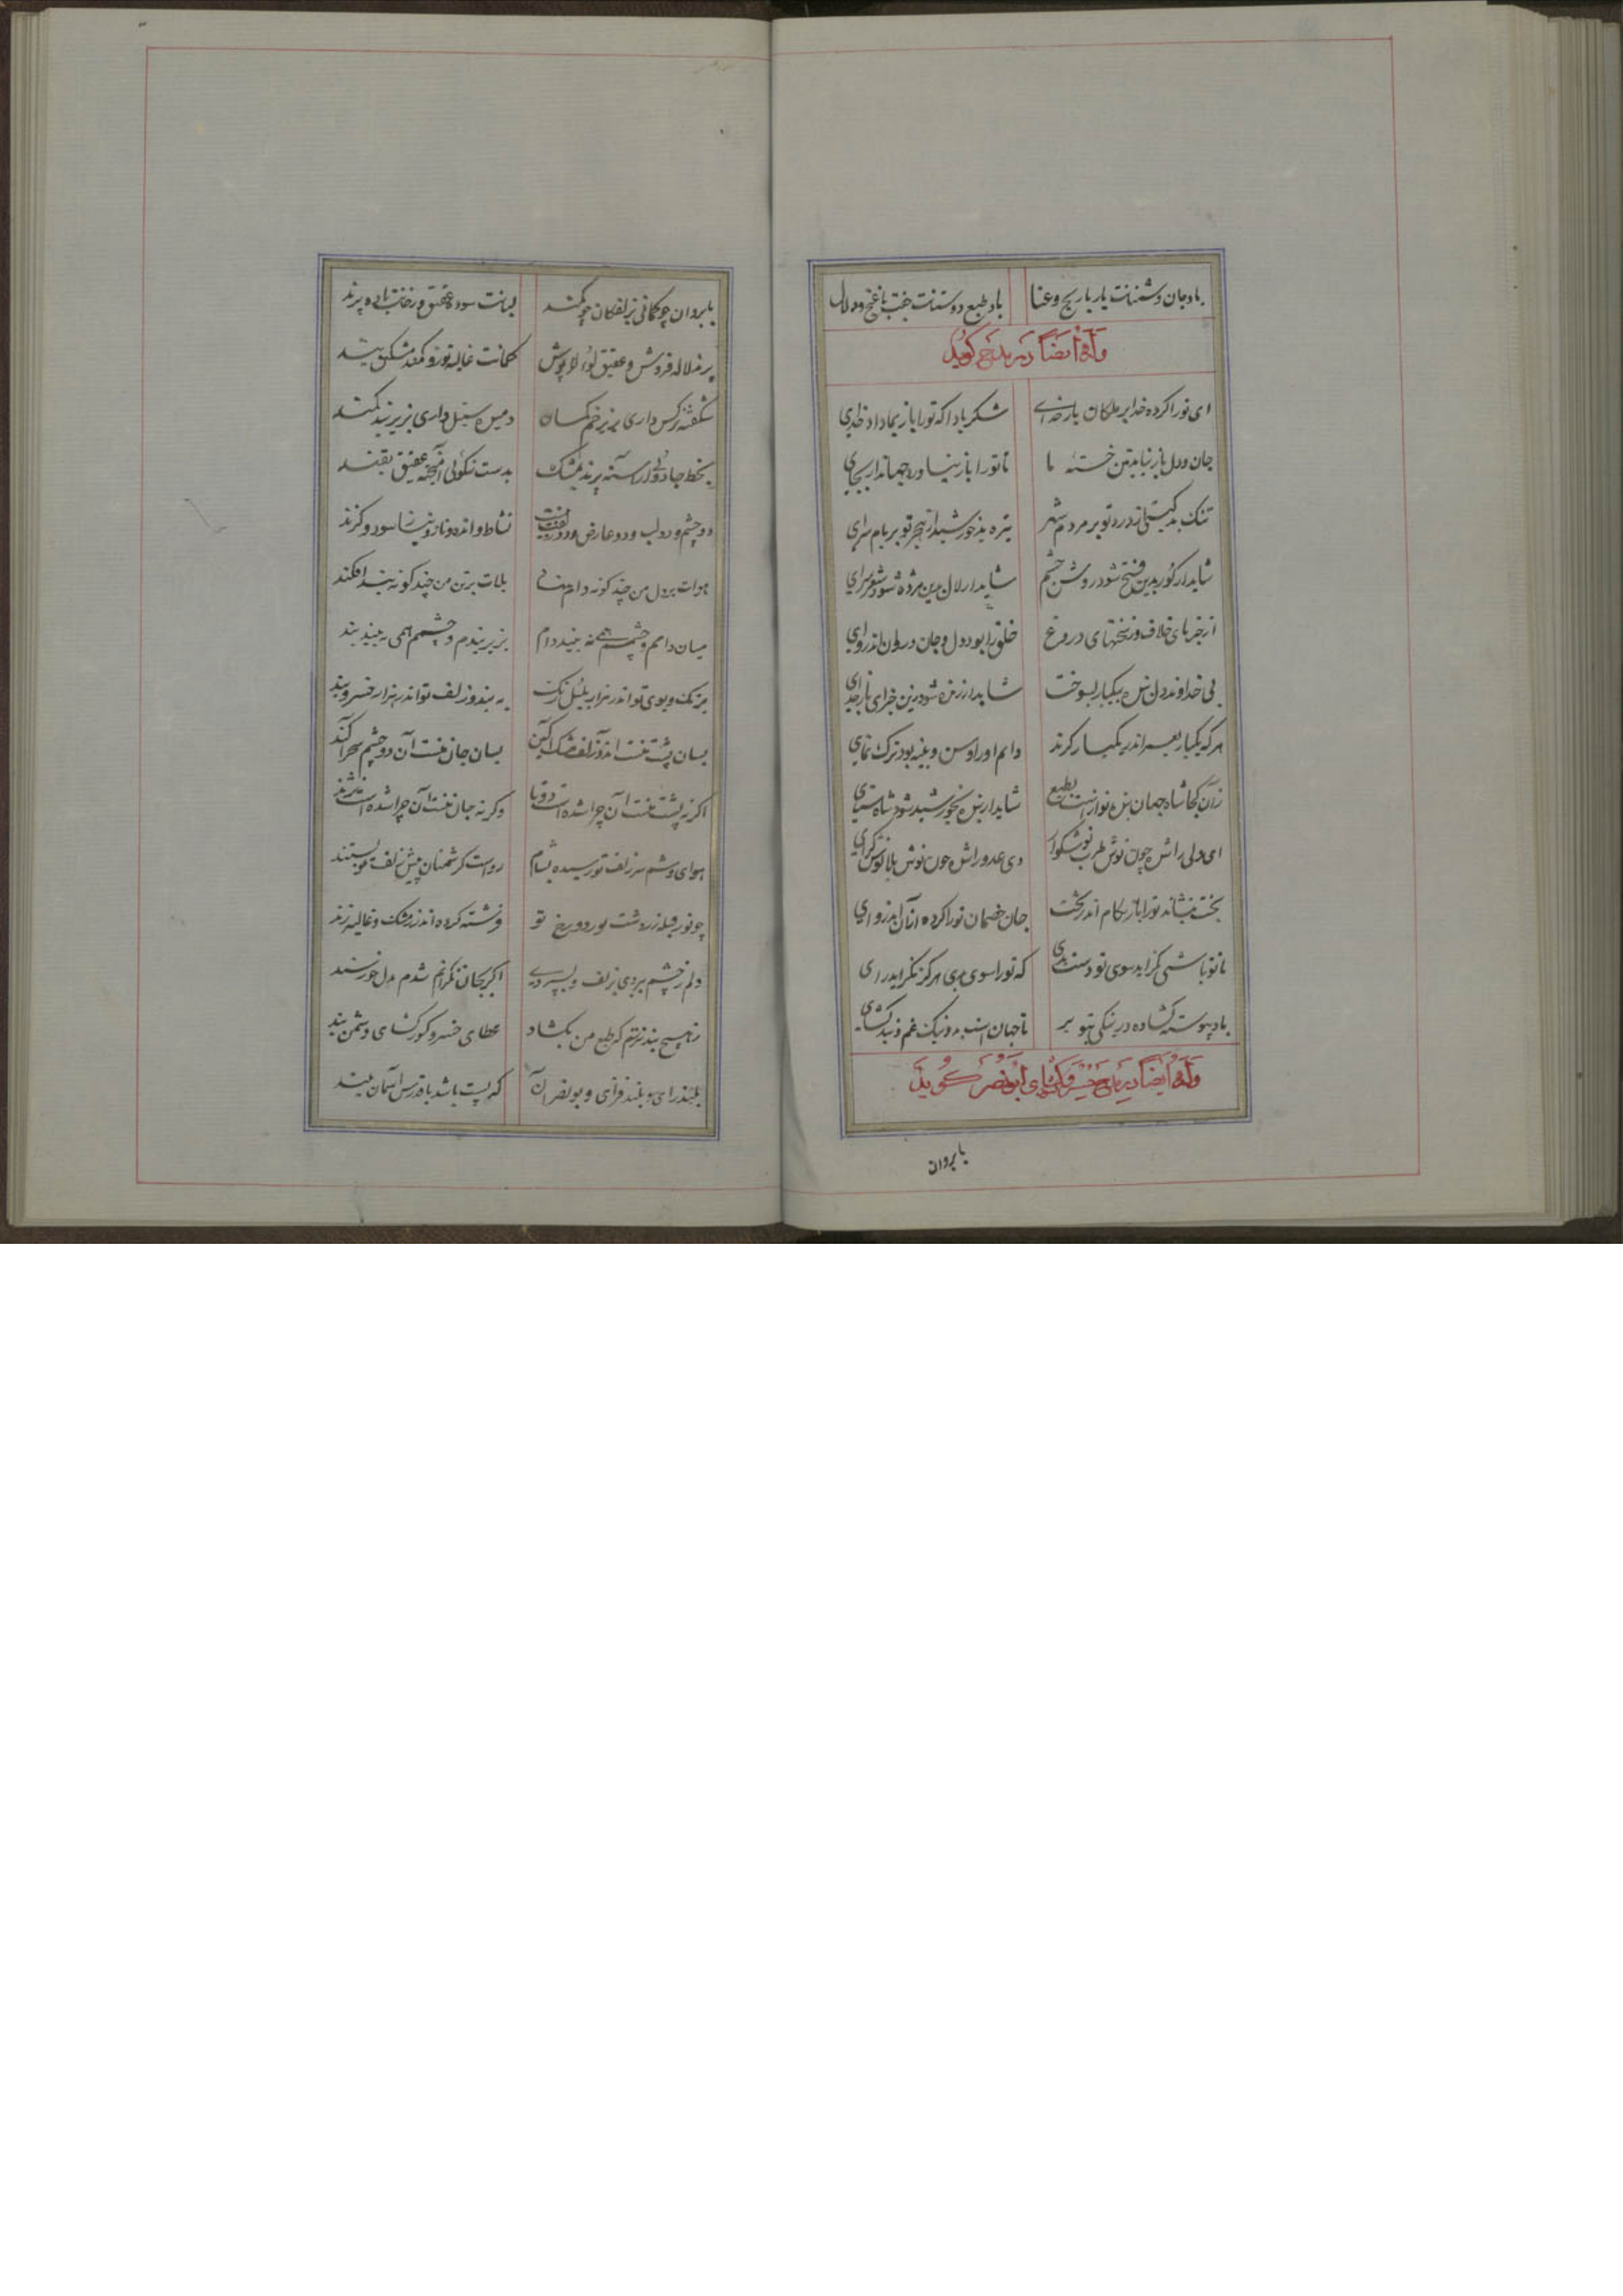 باد جان دشمنانت یار با رنج و عنا باد طبع دوستنات جفت با غنج و دلال
وله ایضا در مدح گوید
ای تو را کرده خدا بر ملکان بار خدای شکر بادا که تو را باز بما داد خدای
جان و دل باز نیامد بتن خسته ما تا تو را باز نیاورد جهاندار بجای
تنک بد گیتی از درد تو بر مردم شهر تیره بد خورشید از هجر تو بر بام سرای
شاید ار کور بدین فتح شود روشن چشم شاید ار لال بدین مژده شود شعر سرای
از خبرهای خلاف و ز سخنهای دروغ خلق را بود دل و جان و روان اندروای
بی خداوند دل بنده بیکبار بسوخت شاید ار زنده شود زین خبرای بار خدای
هر که یکبار بعمر اندر یکبار گزند دایم او را وسن و بیند بود ترک نمای
زان کجا شاه جهان بنده نوازست بطبع شاید ار بنده بخورشید شود شاه ستای
ای ولی را ش چون نوش طرب نوشگوار وی عدو را ش چون نوش بلا نوش گرای
بخت بنشاند تو را باز بکام اندر تخت جان خصمان تو را کرده از آن اندروای
تا تو باشی نگراید سوی تو دست بدی که تو را سوی بدی هرگز نگراید رای
باد پیوسته گشاده در نیکی بتو بر تا جهان است بد و نیک غم و بند گشای
وله ایضا در مدح خسرو گرگانی ابونصر گوید
بابروان
بابروان چو کمانی بزلفکان چو کمند لبانت سوده عقیق و رخانت ساده پرند
پرند لاله فروش و عقیق لولو پوش کمانت غالیه توز و کمند مشکین بند
شکفته نرگس داری بزیر خم کمان دمیده سنبل داری بزیر بند کمند
بخط جادوئی آراسته پرند بمشک بدست نیکوئی آمیخته عقیق بقند
دو چشم و دو لب و دو عارض و دو زلفینت نشاط و انده و ناز و نیاز و سود و گزند
هوات بر دل من چند گونه دام نهاد بلات بر تن من چند گونه بند افکند
میان دامم و چشمم همی نه بیند دام بزیر بندم و چشمم همی نه بیند بند
برنک و بوی تو اندر هزار بلبل رنک به بند و زلف تو اندر هزار خسرو بند
بسان پشت منست آن دو زلف مشک آگین بسان جان منست آن دو چشم سحر آگند
اگر نه پشت منست آن چرا شده است دوتا وگر نه جان منست آن چرا شده است نژند
هوای وشم سر زلف تو رسیده بشام رواست گر شمنان پیش زلف تو بستند
چو نور قبله زردشت بود دو رخ تو فرشته کرده اند ز مشک و غالیه زند
دلم ز چشم ببردی بزلف و بسپردی اگر بجان نگرانم شدم بدل خورسند
ز هیچ بند نترسم که طبع من بگشاد عطای خسرو کشور گشای دشمن بند
بلند رای و بلند فزای و بونصر آن که پست باشد با قدرش آسمان بلند